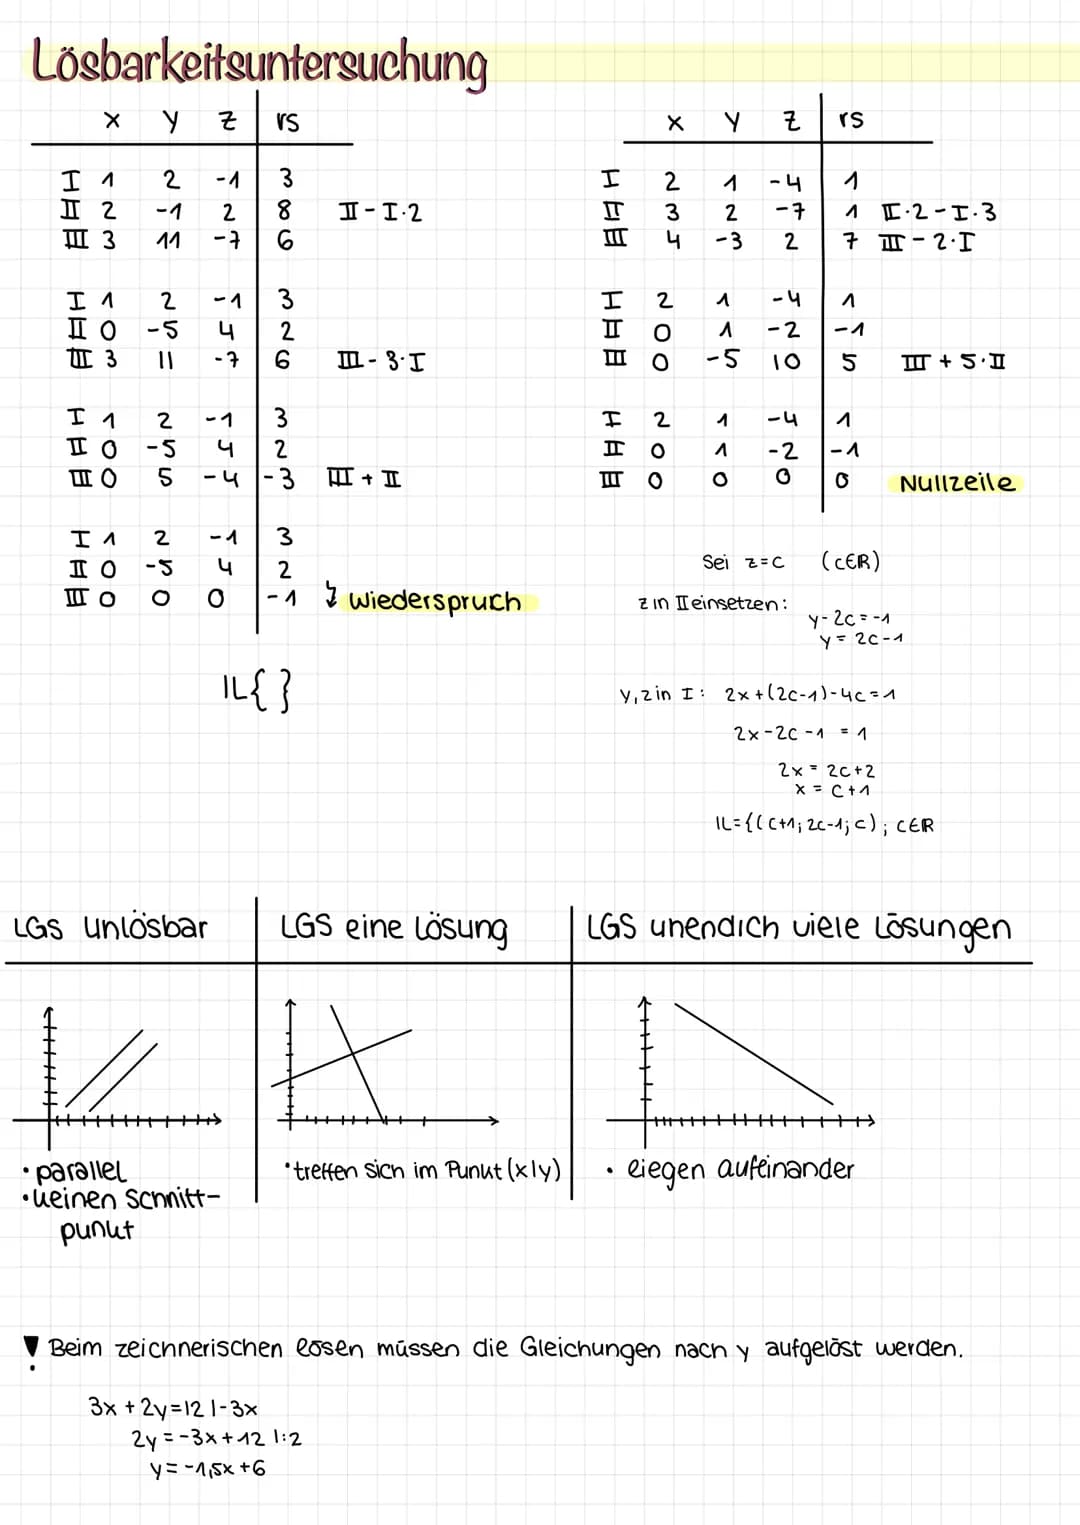 Lösbarkeitsuntersuchung
x y z rs
I 1 2 -1 3
II 2 -1 2 8 II-I·2
III 3 11 -7 6
I 1 2 -1 3
II 0 -5 4 2
III 3 11 -7 6 III-3·I
I 1 2 -1 3
II 0 -5 4 2
III 0 5 -4 -3 III+II
I 1 2 -1 3
II 0 -5 4 2
III 0 0 0 -1 ↯ Wiederspruch
𝕃{ }
x y z rs
I 2 1 -4 1
II 3 2 -7 1 II·2-I·3
III 4 -3 2 7 III-2·I
I 2 1 -4 1
II 0 1 -2 -1
III 0 -5 10 5 III+5·II
I 2 1 -4 1
II 0 1 -2 -1
III 0 0 0 0 Nullzeile
Sei z=c (c∈ℝ)
z in II einsetzen:
y-2c=-1
y=2c-1
y,z in I: 2x+(2c-1)-4c=1
2x-2c-1=1
2x=2c+2
x=c+1
𝕃={(c+1;2c-1;c);c∈ℝ
LGS unlösbar
LGS eine Lösung
LGS unendlich viele Lösungen
• parallel
• keinen Schnitt-
punkt
• treffen sich im Punkt (x|y)
• liegen aufeinander
! Beim zeichnerischen lösen müssen die Gleichungen nach y aufgelöst werden.
3x+2y=12 |-3x
2y=-3x+12 |:2
y=-1,5x+6